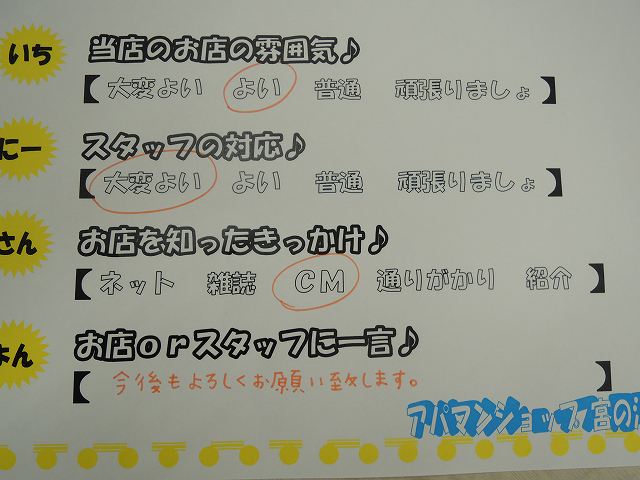 いち 当店のお店の雰囲気♪
【 大変よい よい 普通 頑張りましょ 】
にー スタッフの対応♪
【 大変よい よい 普通 頑張りましょ 】
さん お店を知ったきっかけ♪
【 ネット 雑誌 CM 通りがかり 紹介 】
ょん お店orスタッフに一言♪
【 今後もよろしくお願い致します。 】
アパマンショップ宮の